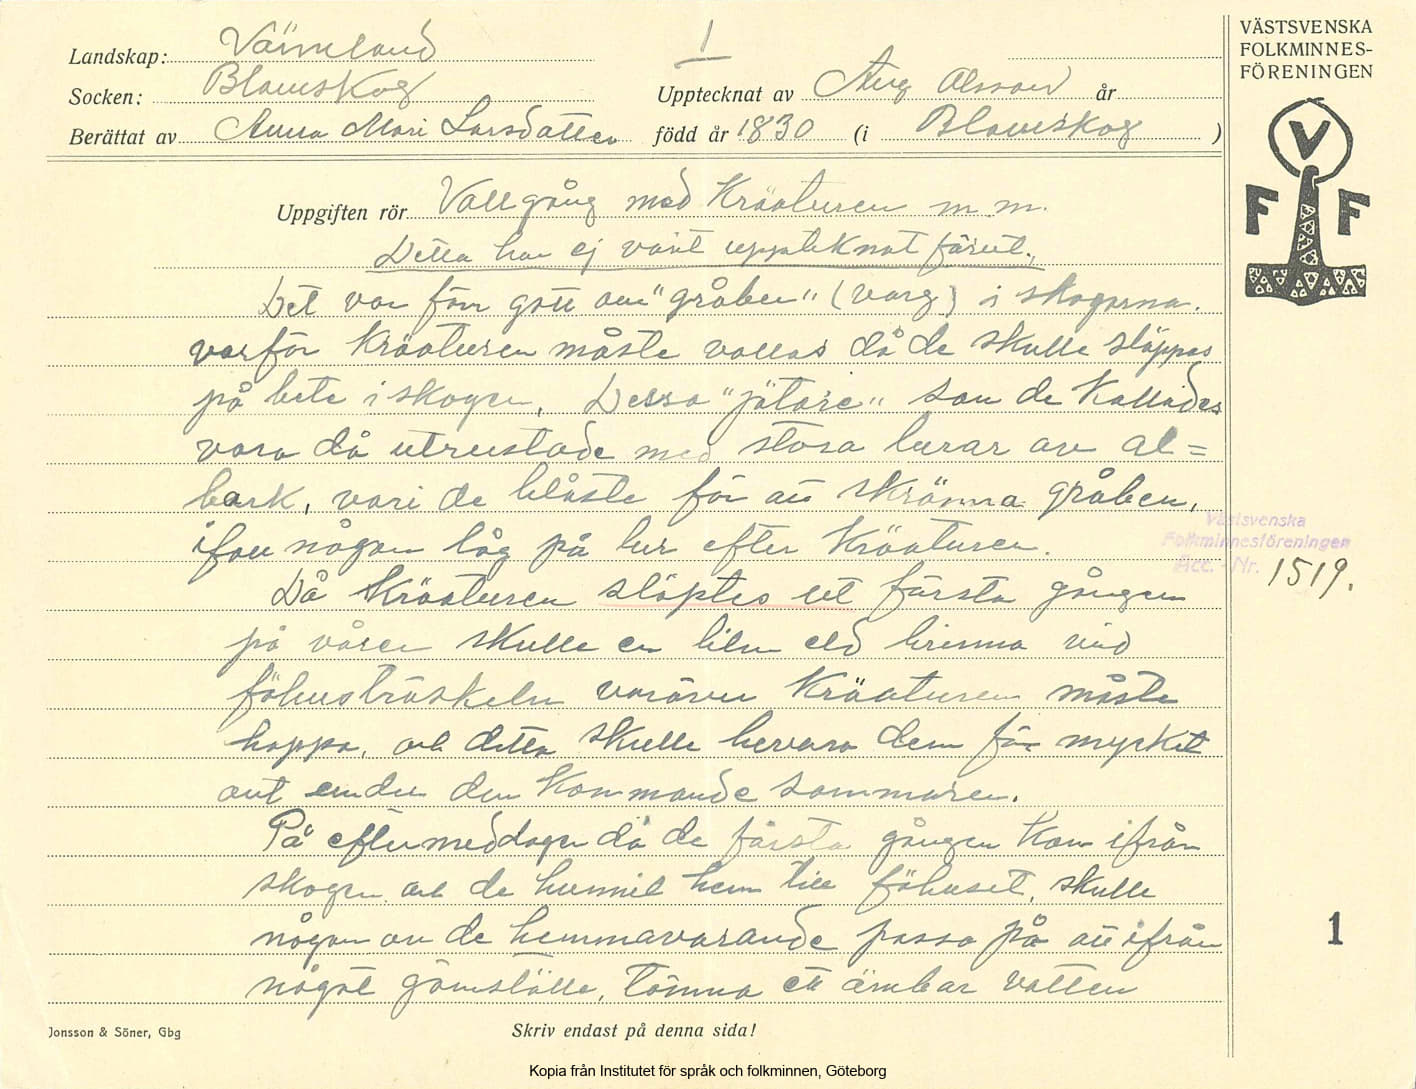 1
VÄSTSVENSKA
FOLKMINNES-
FÖRENINGEN
Landskap: Värmland
Socken: Blomskog
Upptecknat av Aug Olsson år
Berättat av Anna Mari Larsdatter född år 1830 (i Blomskog )
V
F F
Uppgiften rör Vallgång med Kräaturen m.m.
Detta har ej varit uppteknat förut.
Det var förr gott om "gråben" (varg) i skogarna.
varför Kräaturen måste vallas då de skulle släppas
på bete i skogen. Dessa "jätare" som de Kallades
vara då utrustade med stora lurar av al=
bark, vari de blåste för att skrämma gråben,
ifall någon låg på lur efter Kräaturen.
Då Kräaturen släptes ut första gången
på våren skulle en liten eld brinna vid
föhuströskeln varöver Kräaturen måste
hoppa, och detta skulle bevara dem för mycket
ont under den Kommande sommaren.
På eftermeddagen då de första gången Kom ifrån
skogen och de hunnit hem till föhuset, skulle
någon av de hemmavarande passa på att ifrån
något gömställe, tömma ett ämbar vatten
Västsvenska
Folkminnesföreningen
Acc. - Nr. 1519.
1
Jonsson & Söner, Gbg
Skriv endast på denna sida!
Kopia från Institutet för språk och folkminnen, Göteborg